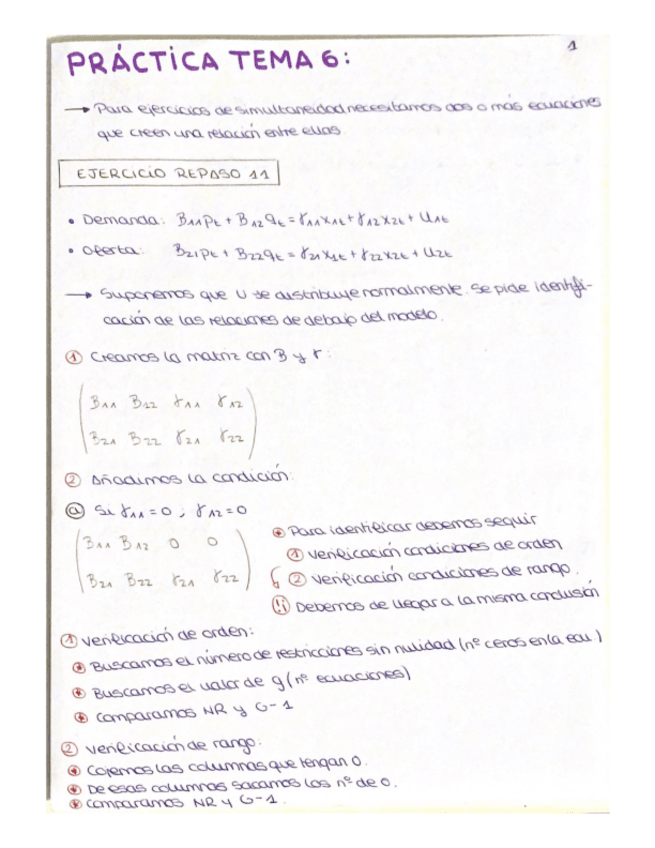 1
PRÁCTICA TEMA 6:
→ Para ejercicios de simultaneidad necesitamos dos o más ecuaciones
que creen una relación entre ellas.
EJERCICIO REPASO 11
• Demanda: B11pt + B12qt = γ11x1t + γ12x2t + U1t
• Oferta: B21pt + B22qt = γ21x1t + γ22x2t + U2t
→ Suponemos que U se distribuye normalmente. Se pide identifi-
cación de las relaciones de debajo del modelo.
① Creamos la matriz con B y γ:
B11 B22 γ11 γ12
B21 B22 γ21 γ22
② Añadimos la condición:
ⓐ Si γ11 = 0, γ12 = 0
B11 B12 0 0
B21 B22 γ21 γ22
⊛ Para identificar debemos seguir
① Verificación condiciones de orden
② Verificación condiciones de rango.
¡! Debemos de llegar a la misma conclusión
① Verificación de orden:
⊛ Buscamos el número de restricciones sin nulidad (nº ceros en la ecu.)
⊛ Buscamos el valor de g (nº ecuaciones)
⊛ Comparamos NR y G-1
② Verificación de rango:
⊛ Cojemos las columnas que tengan 0.
⊛ De esas columnas sacamos los nº de 0.
⊛ Comparamos NR y G-1.